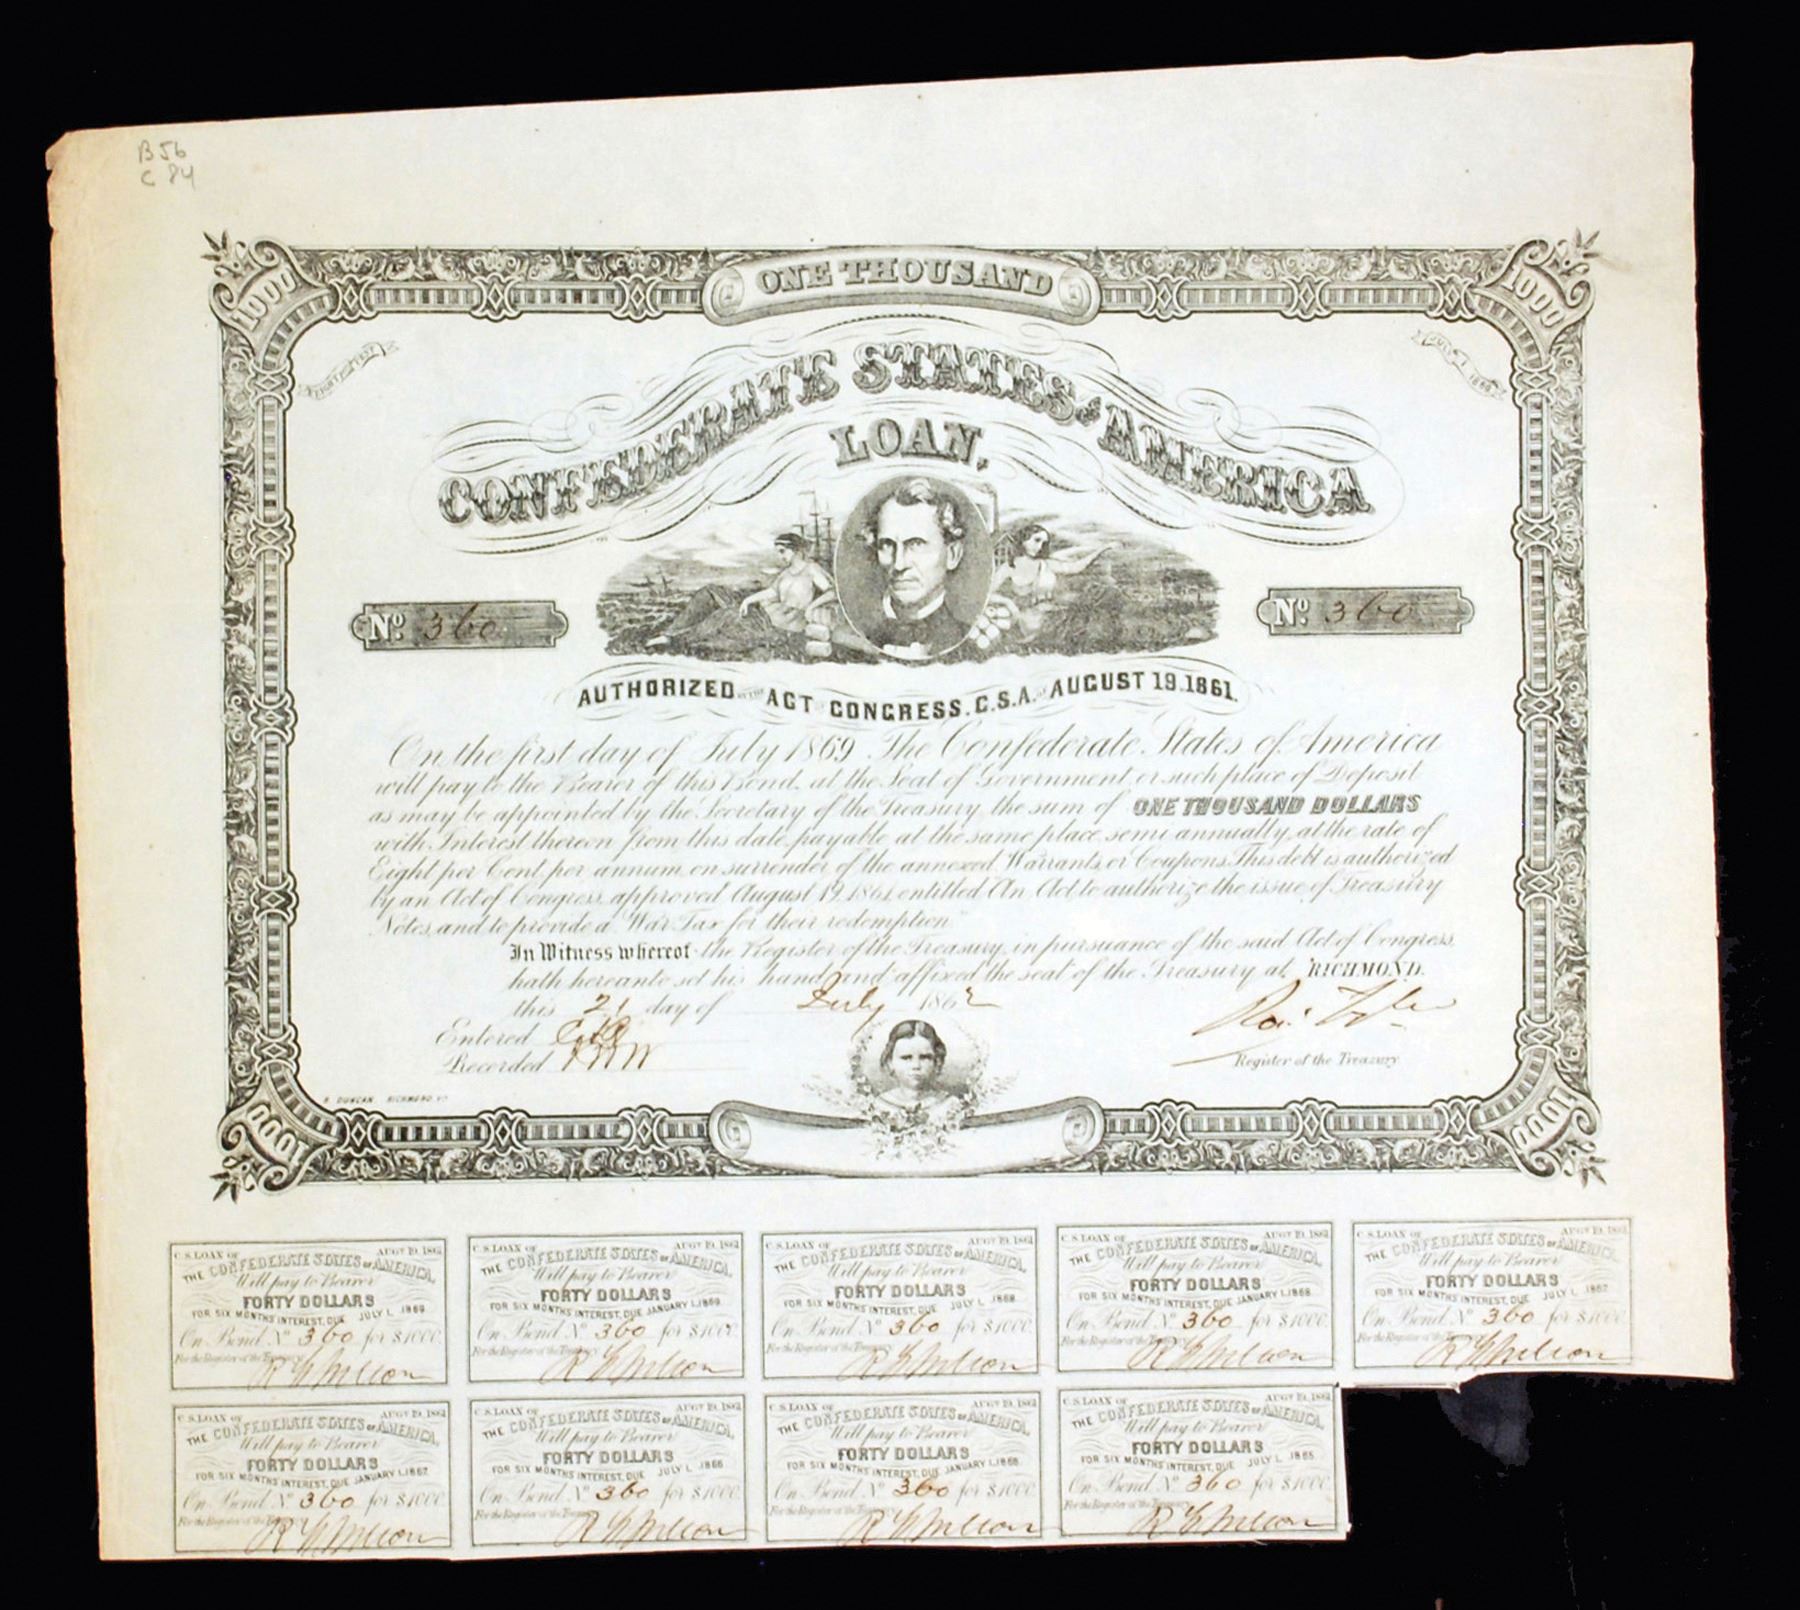 B 56
C 84
ONE THOUSAND
1000
1000
CONFEDERATE STATES OF AMERICA
LOAN,
No. 360
No. 360
AUTHORIZED BY THE ACT OF CONGRESS. C.S.A. OF AUGUST 19. 1861.
On the first day of July 1869 The Confederate States of America
will pay to the Bearer of this Bond, at the Seat of Government, or such place of Deposit
as may be appointed by the Secretary of the Treasury the sum of ONE THOUSAND DOLLARS
with Interest thereon from this date, payable at the same place semi annually, at the rate of
Eight per Cent per annum on surrender of the annexed Warrants or Coupons. This debt is authorized
by an Act of Congress, approved August 19, 1861, entitled "An Act, to authorize the issue, of Treasury
Notes, and to provide a War Tax for their redemption"
In Witness whereof the Register of the Treasury, in pursuance of the said Act of Congress,
hath hereunto set his hand and affixed the seal of the Treasury at RICHMOND.
this 21 day of July 1862
Entered
Recorded
Register of the Treasury
R. DUNCAN. RICHMOND. VA
1000
1000
C.S. LOAN OF AUGT 19, 1861
THE CONFEDERATE STATES OF AMERICA,
Will pay to Bearer
FORTY DOLLARS
FOR SIX MONTHS INTEREST, DUE JULY 1, 1869
On Bond No 360 for $1000
For the Register of the Treasury
C.S. LOAN OF AUGT 19, 1861
THE CONFEDERATE STATES OF AMERICA,
Will pay to Bearer
FORTY DOLLARS
FOR SIX MONTHS INTEREST, DUE JANUARY 1, 1869
On Bond No 360 for $1000
For the Register of the Treasury
C.S. LOAN OF AUGT 19, 1861
THE CONFEDERATE STATES OF AMERICA,
Will pay to Bearer
FORTY DOLLARS
FOR SIX MONTHS INTEREST, DUE JULY 1, 1868
On Bond No 360 for $1000
For the Register of the Treasury
C.S. LOAN OF AUGT 19, 1861
THE CONFEDERATE STATES OF AMERICA,
Will pay to Bearer
FORTY DOLLARS
FOR SIX MONTHS INTEREST, DUE JANUARY 1, 1868
On Bond No 360 for $1000
For the Register of the Treasury
C.S. LOAN OF AUGT 19, 1861
THE CONFEDERATE STATES OF AMERICA,
Will pay to Bearer
FORTY DOLLARS
FOR SIX MONTHS INTEREST, DUE JULY 1, 1867
On Bond No 360 for $1000
For the Register of the Treasury
C.S. LOAN OF AUGT 19, 1861
THE CONFEDERATE STATES OF AMERICA,
Will pay to Bearer
FORTY DOLLARS
FOR SIX MONTHS INTEREST, DUE JANUARY 1, 1867
On Bond No 360 for $1000
For the Register of the Treasury
C.S. LOAN OF AUGT 19, 1861
THE CONFEDERATE STATES OF AMERICA,
Will pay to Bearer
FORTY DOLLARS
FOR SIX MONTHS INTEREST, DUE JULY 1, 1866
On Bond No 360 for $1000
For the Register of the Treasury
C.S. LOAN OF AUGT 19, 1861
THE CONFEDERATE STATES OF AMERICA,
Will pay to Bearer
FORTY DOLLARS
FOR SIX MONTHS INTEREST, DUE JANUARY 1, 1866
On Bond No 360 for $1000
For the Register of the Treasury
C.S. LOAN OF AUGT 19, 1861
THE CONFEDERATE STATES OF AMERICA,
Will pay to Bearer
FORTY DOLLARS
FOR SIX MONTHS INTEREST, DUE JULY 1, 1865
On Bond No 360 for $1000
For the Register of the Treasury